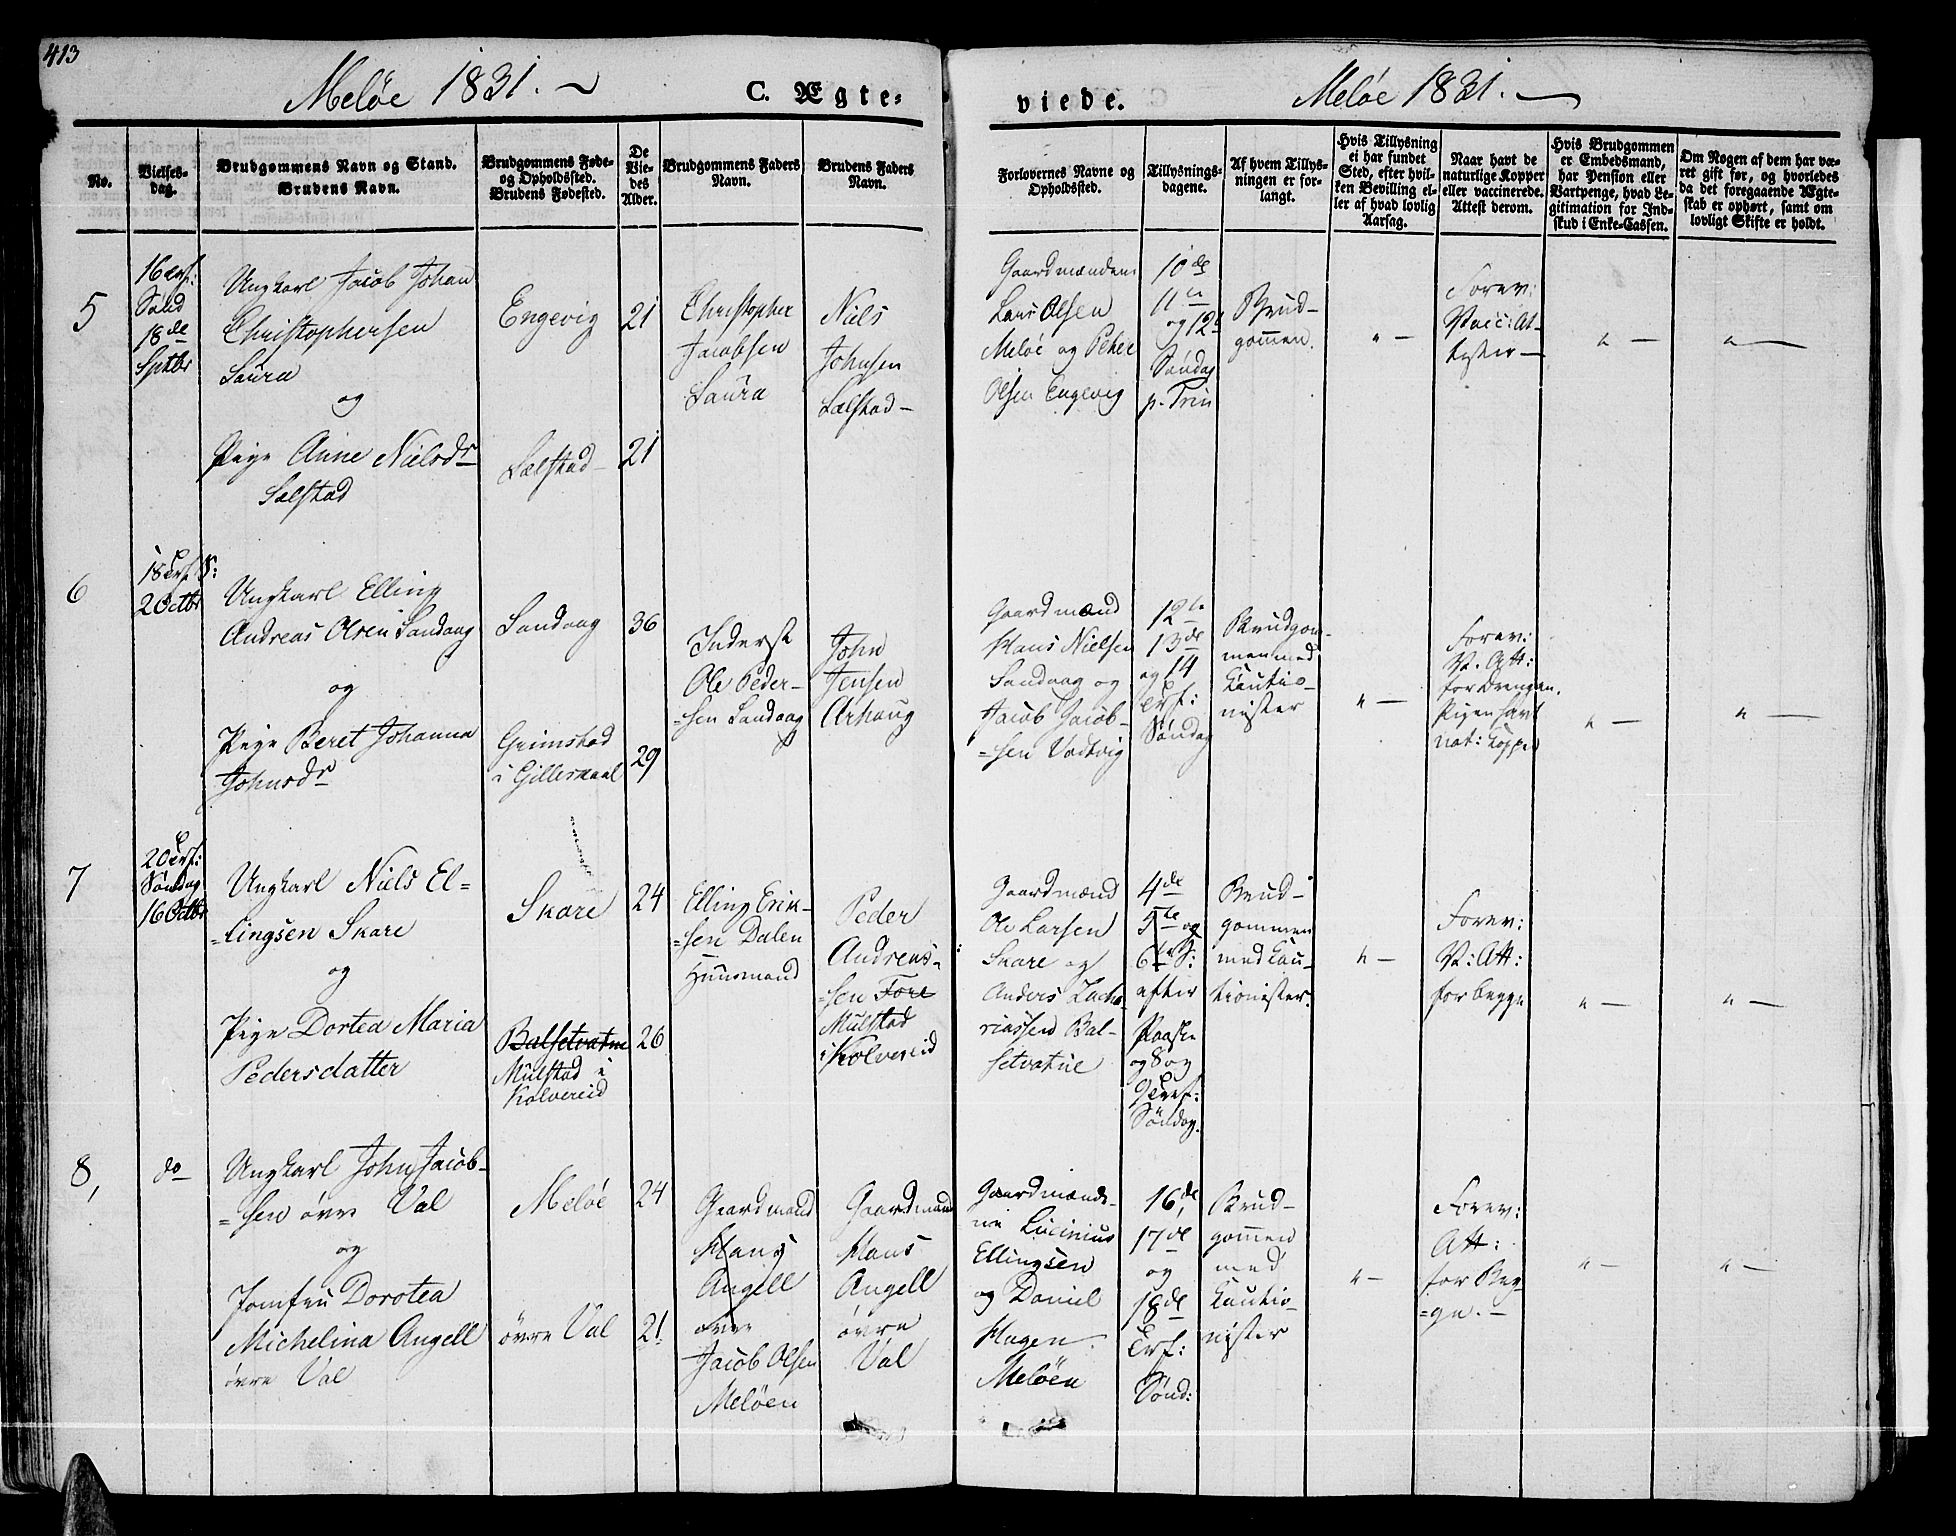 413
Meløe 1831.
C. Ægte-
viede.
Meløe 1831.
No.
Vielses-
dag.
Brudgommens Navn og Stand.
Brudens Navn.
Brudgommens Føde-
og Opholdssted.
Brudens Fødested.
De
Vie-
des
Alder.
Brudgommens Faders
Navn.
Brudens Faders
Navn.
Forlovernes Navne og
Opholdssted.
Tillysnings-
dagene.
Af hvem Tillys-
ningen er for-
langt.
Hvis Tillysning
ei har fundet
Sted, efter hvil-
ken Bevilling el-
ler af hvad lovlig
Aarsag.
Naar havt de
naturlige Kopper
eller vaccinerede.
Attest derom.
Hvis Brudgommen
er Embedsmand,
har Pension eller
Vartpenge, hvad Le-
gitimation for Ind-
skud i Enke-Cassen.
Om Nogen af dem har væ-
ret gift før, og hvorledes
da det foregaaende Ægte-
skab er ophørt, samt om
lovligt Skifte er holdt.
5
Sønd
18de
Sptbr
Ungkarl Jacob Johan
Christophersen
Saura
og
Pige Anne Nielsdr
Sælstad
Engevig
Sælstad
21
21
Christopher
Jacobsen
Saura
Niels
Johnsen
Sælstad
Gaardmændene
Lars Olsen
Meløe og Peter
Olsen Engevig
10de
11te
og 12te
Søndag
p. Trin
Brud-
gommen.
Forev:
Vacc: At-
tester
6
2 Octbr
Ungkarl Elling
Andreas Olsen Sandaag
og
Pige Beret Johanna
Johnsdr
Sandaag
Grimstad
i Gilleskaal
36
29
Inderst
Ole Peder-
sen Sandaag
John
Jensen
Arhaug
Gaardmænd
Hans Nielsen
Sandaag og
Jacob Jacob-
sen Vadtvig
12te
13de
og 14
Søndag
Brudgom-
men med
Kautio-
nister
Forev:
V. Att:
for Drengen.
Pigen havt
nat: Kopper
7
Søndag
16 Octbr
Ungkarl Niels El-
lingsen Skare
og
Pige Dortea Maria
Pedersdatter
Skare
Balsetvatne
Mulstad i
Kolvereid
24
26
Elling Erik-
sen Dalen
Huusmand
Peder
Andreas-
sen Fore
Mulstad
i Kolvereid
Gaardmænd
Ole Larsen
Skare og
Anders Zacha-
riassen Bal-
setvatne
4de
5te og
6te S:
efter
Paaske
og 8 og
Søndag.
Brud-
gommen
med Kau-
tionister.
Forev:
V: Att:
for begge
8,
do
Ungkarl John Jacob-
sen øvre Val
og
Jomfru Dorotea
Michelina Angell
øvre Val
Meløe
øvre Val
24
21
Gaardmand
Hans
Angell
øvre
Jacob Olsen
Meløen
Gaardmand
Hans
Angell
øvre
Val
Gaardmænde-
ne Lucinius
Ellingsen
og Daniel
Hagen
Meløen
16de
17de
og
18de
Sønd:
Brud-
gommen
med
Kautio-
nister
Forev:
Att:
for Beg-
ge.